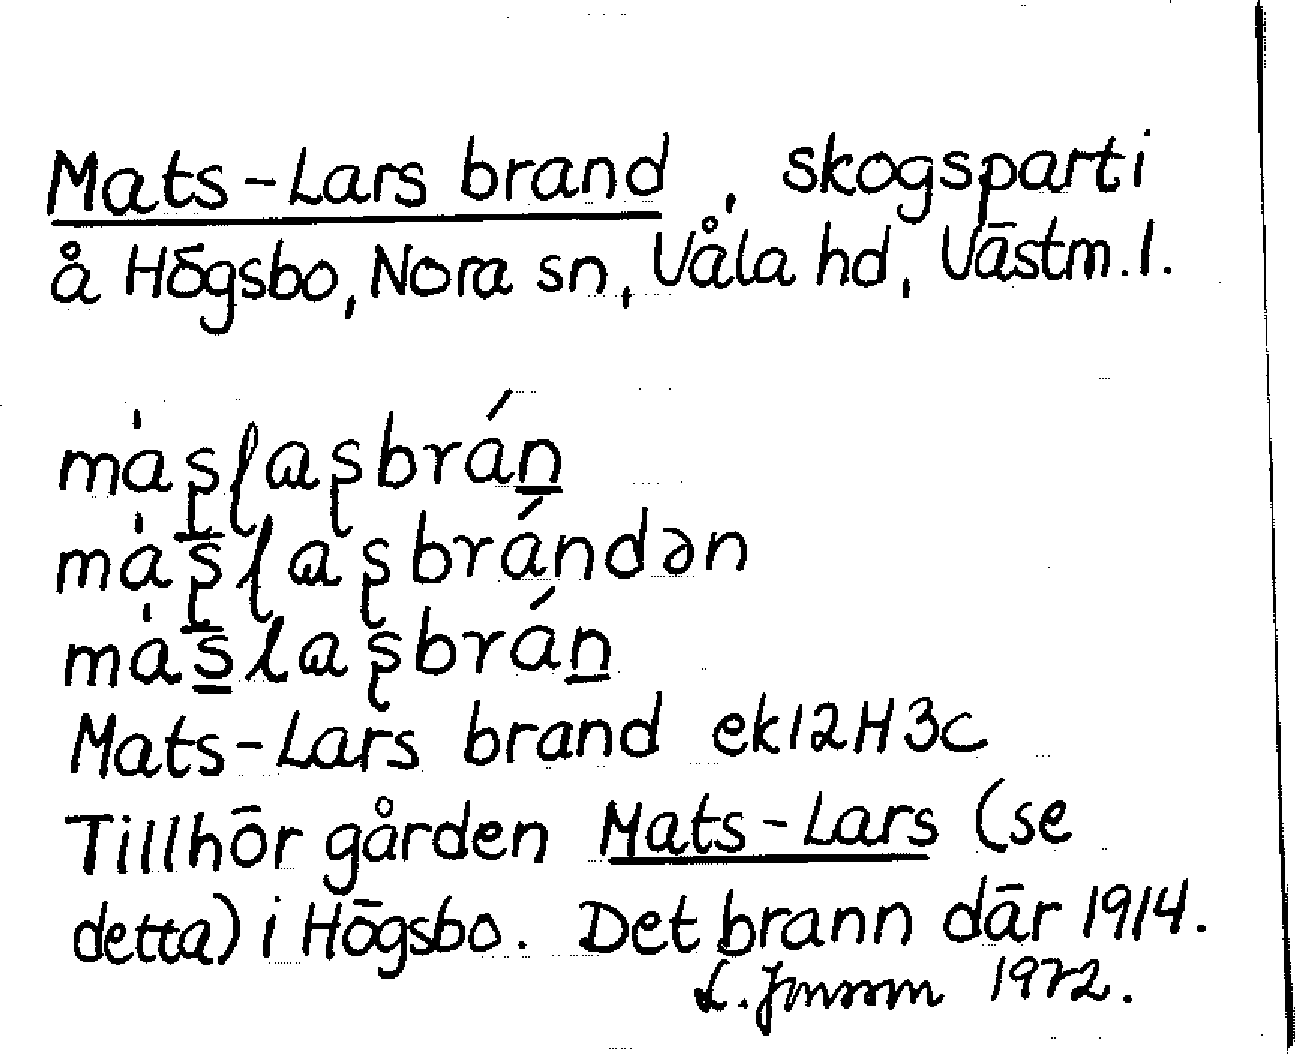 Mats-Lars brand, skogsparti
å Högsbo, Nora sn, Våla hd, Västm. l.
mȧʂɭɑʂbrán̲
mȧʂ̅ɭɑʂbrándən
mȧs̲̅lɑʂbrán̲
Mats-Lars brand ek12H3c
Tillhör gården Mats-Lars (se
detta) i Högsbo. Det brann där 1914.
L. Jonsson 1972.